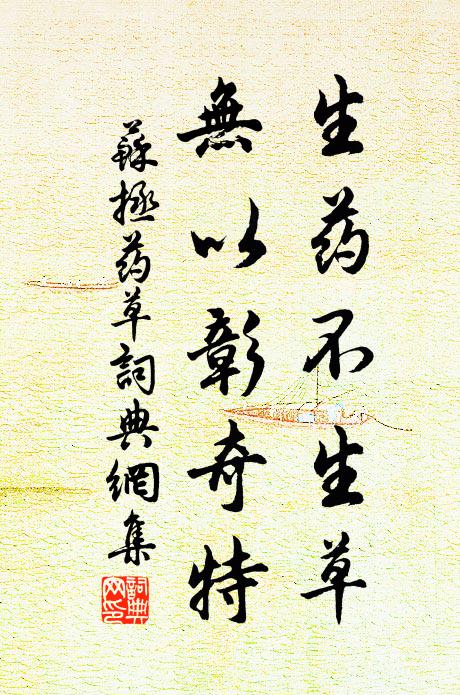 生药不生草
無以彰奇特
蘇拯药草詞典網集
詞典
网印